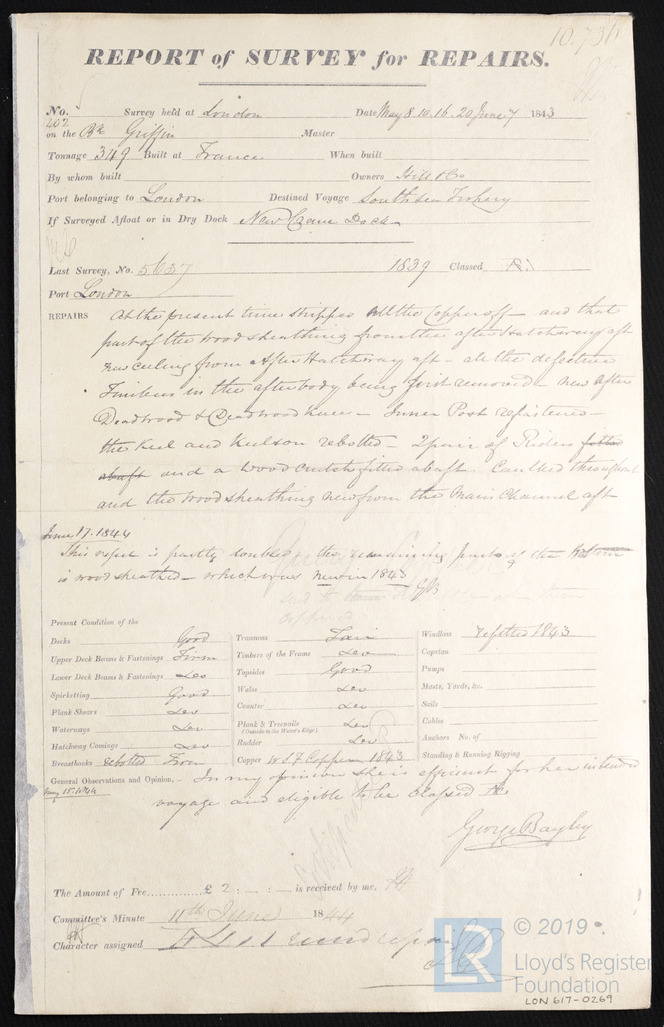 10.736
REPORT of SURVEY for REPAIRS.
No. 402 Survey held at London Date May 8. 10. 16. 20 June 7 1843
on the Bk Griffin Master
Tonnage 349 Built at France When built
By whom built Owners Hill & Co
Port belonging to London Destined Voyage South Sea Fishery
If Surveyed Afloat or in Dry Dock New Crane Dock
Last Survey, No. 5637 1839 Classed
Port London
REPAIRS At the present time stripped All the Copper off – and that
part of the wood sheathing from the after Hatchway aft
new ceiling from After Hatchway aft – all the defective
Timbers in the afterbody being first removed – new After
Deadwood & Deadwood knee – Inner Post refastened –
the Keel and Keelson rebolted – 2 pair of Riders fitted
abaft and a wood crutch fitted abaft. Caulked throughout
and the wood sheathing new from the Main Channel aft
June 17. 1844
This vessel is partly doubled the remaining part of the bottom
is wood sheathed – which was new in 1843 GB
Present Condition of the
Decks Good
Upper Deck Beams & Fastenings Firm
Lower Deck Beams & Fastenings Do
Spirketting Good
Plank Shears Do
Waterways Do
Hatchway Comings Do
Breasthooks rebolted Firm
Transoms Fair
Timbers of the Frame Do
Topsides Good
Wales Do
Counter Do
Plank & Treenails Do
(Outside to the Water's Edge.)
Rudder Do
Copper W S F Copper 1843
Windlass refitted 1843
Capstan
Pumps
Masts, Yards, &c.
Sails
Cables
Anchors No. of
Standing & Running Rigging
General Observations and Opinion, – In my opinion she is efficient for her intended
May 15. 1844
voyage and eligible to be Classed
George Bayley
The Amount of Fee ............ £ 2 : – : – is received by me,
Committee's Minute 11th June 1844
Character assigned
© 2019
LR
Lloyd's Register
Foundation
LON 617-0269